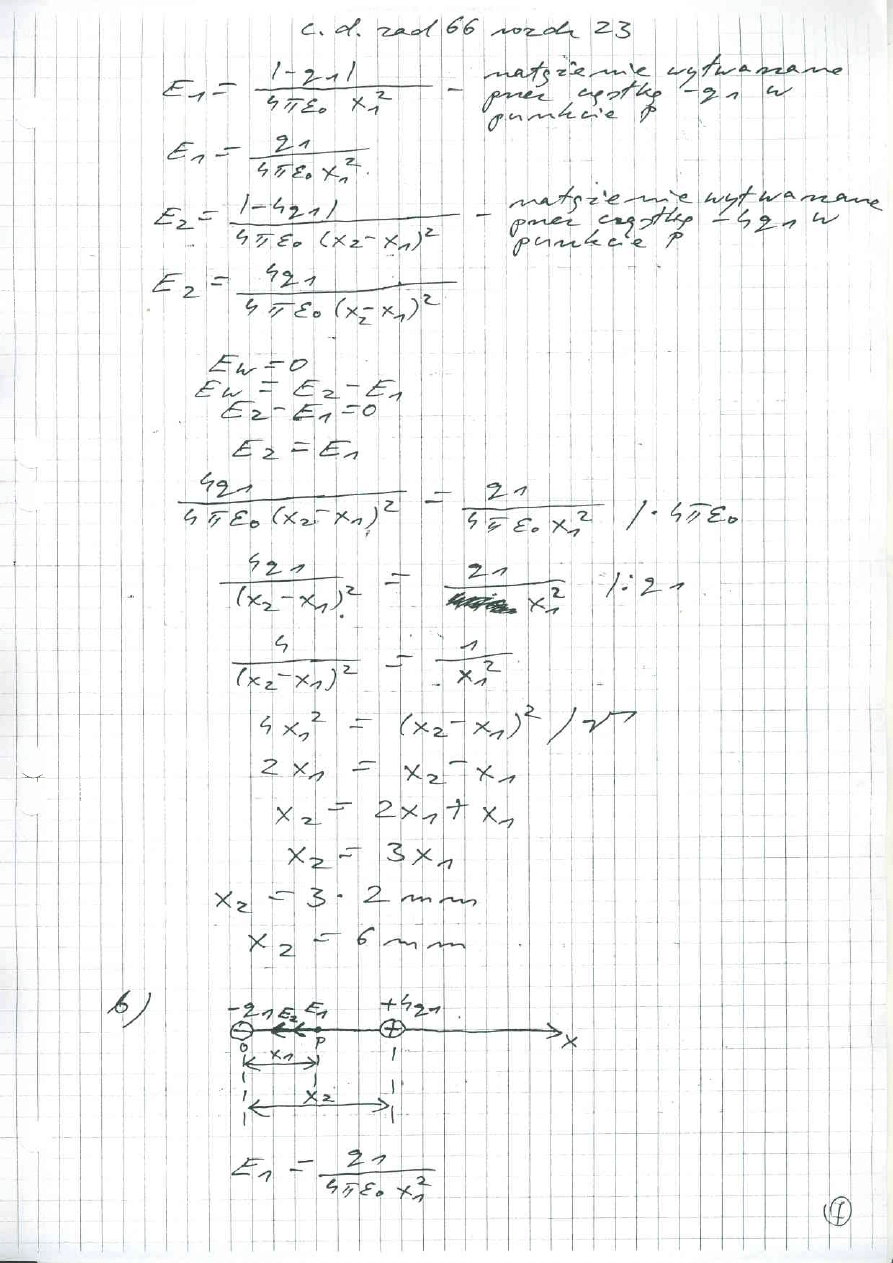 c. d. zad 66 rozdz 23
E₁ = |-q₁| / 4πε₀ x₁² - natężenie wytwarzane
przez cząstkę -q₁ w
punkcie P
E₁ = q₁ / 4πε₀ x₁²
E₂ = |-4q₁| / 4πε₀ (x₂-x₁)² - natężenie wytwarzane
przez cząstkę -4q₁ w
punkcie P
E₂ = 4q₁ / 4πε₀ (x₂-x₁)²
Ew = 0
Ew = E₂ - E₁
E₂ - E₁ = 0
E₂ = E₁
4q₁ / 4πε₀ (x₂-x₁)² = q₁ / 4πε₀ x₁² /· 4πε₀
4q₁ / (x₂-x₁)² = q₁ / x₁² /: q₁
4 / (x₂-x₁)² = 1 / x₁²
4x₁² = (x₂-x₁)² /√
2x₁ = x₂-x₁
x₂ = 2x₁ + x₁
x₂ = 3x₁
x₂ = 3 · 2 mm
x₂ = 6 mm
b)
-q₁ E₂ E₁ +4q₁
- +
0 P x
x₁
x₂
E₁ = q₁ / 4πε₀ x₁²
7